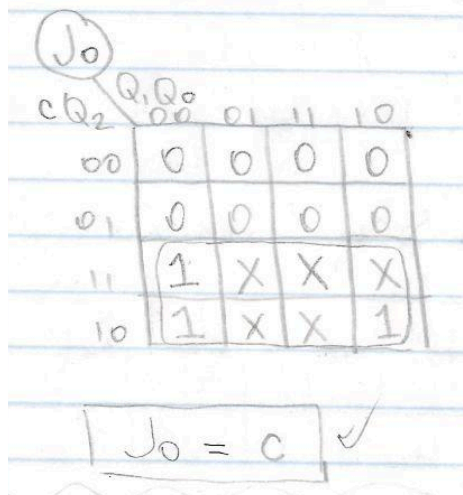 J₀
Q₁Q₀
CQ₂ 00 01 11 10
00 0 0 0 0
01 0 0 0 0
11 1 X X X
10 1 X X 1
J₀ = C ✓